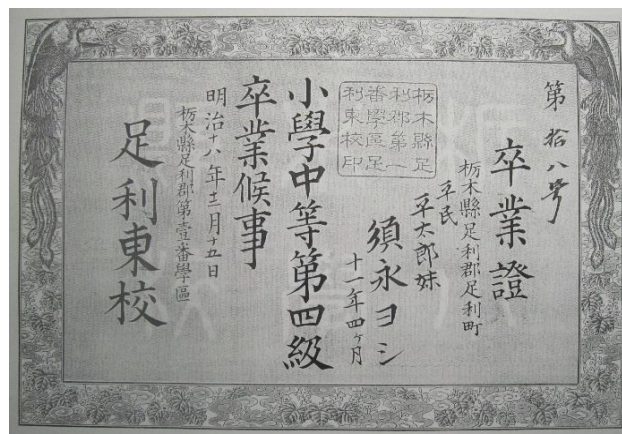 第拾八号
卒業證
栃木縣足利郡足利町
平民
平太郎妹
須永ヨシ
十一年四ヶ月
栃木縣足
利郡第一
番學區足
利東校印
小學中等第四級
卒業候事
明治十八年十二月十五日
栃木縣足利郡第壹番學區
足利東校